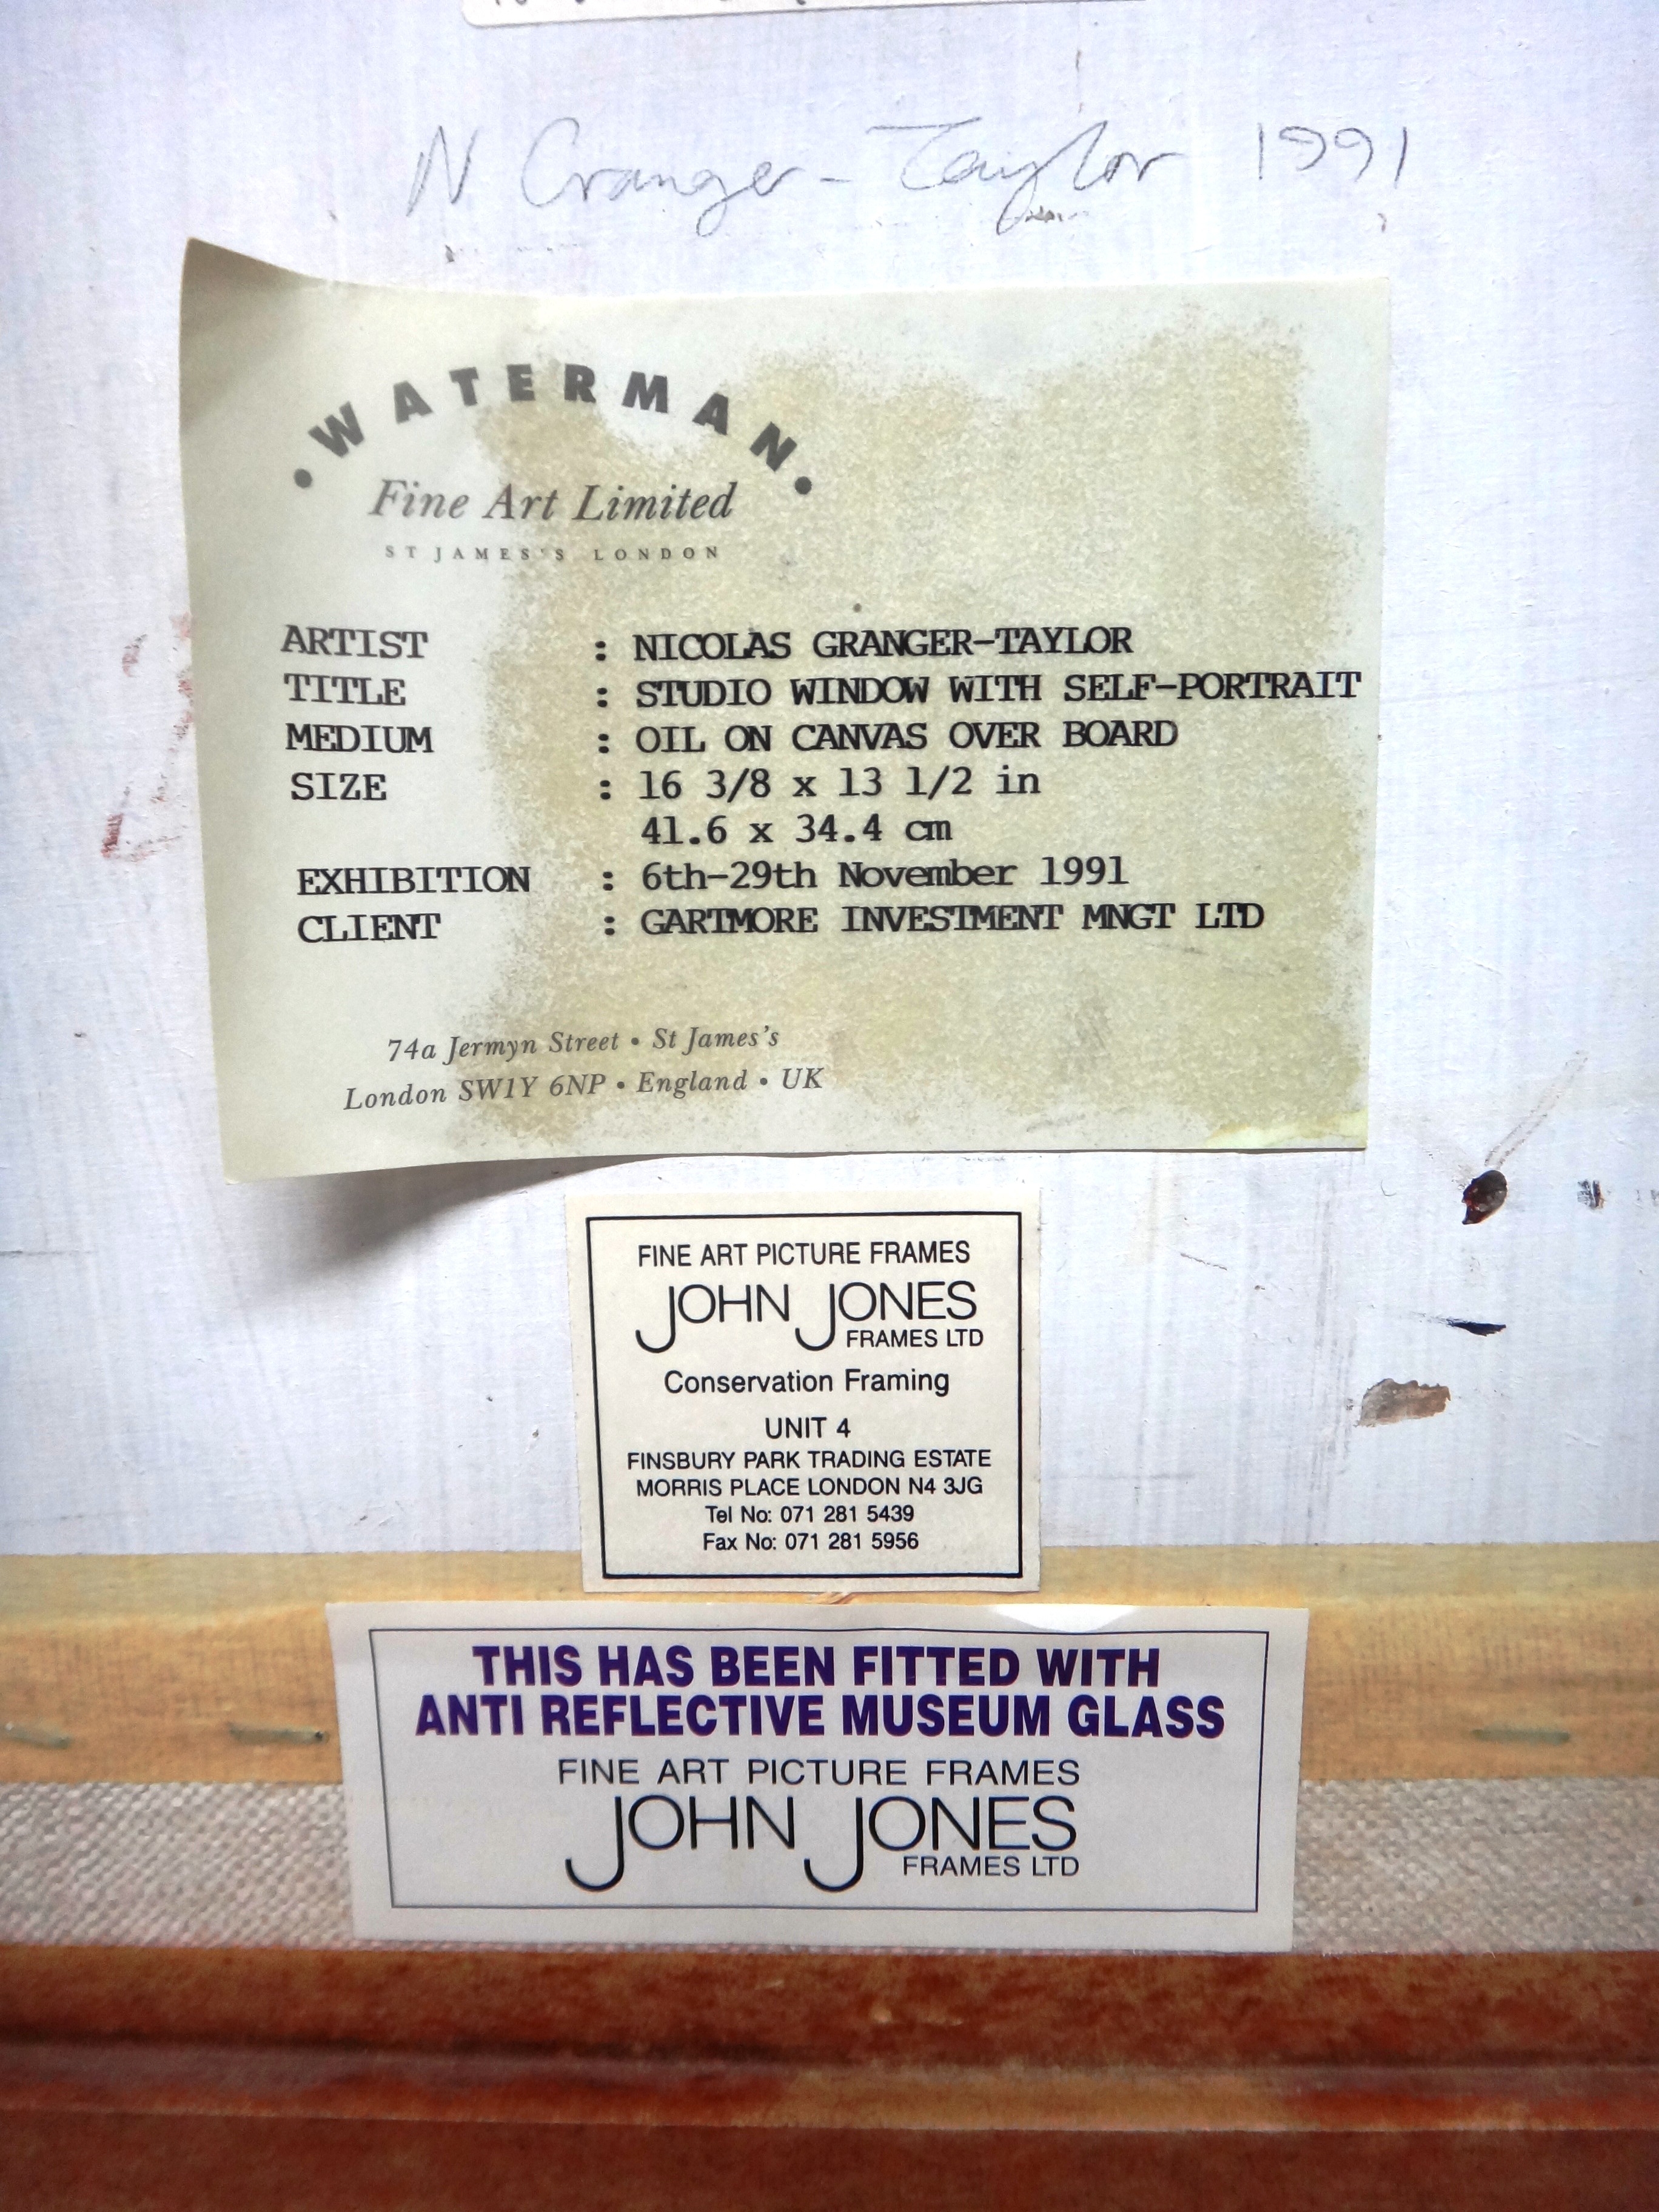 N Granger-Taylor 1991
• WATERMAN •
Fine Art Limited
ST JAMES'S LONDON
ARTIST : NICOLAS GRANGER-TAYLOR
TITLE : STUDIO WINDOW WITH SELF-PORTRAIT
MEDIUM : OIL ON CANVAS OVER BOARD
SIZE : 16 3/8 x 13 1/2 in
41.6 x 34.4 cm
EXHIBITION : 6th-29th November 1991
CLIENT : GARTMORE INVESTMENT MNGT LTD
74a Jermyn Street • St James's
London SW1Y 6NP • England • UK
FINE ART PICTURE FRAMES
JOHN JONES
FRAMES LTD
Conservation Framing
UNIT 4
FINSBURY PARK TRADING ESTATE
MORRIS PLACE LONDON N4 3JG
Tel No: 071 281 5439
Fax No: 071 281 5956
THIS HAS BEEN FITTED WITH
ANTI REFLECTIVE MUSEUM GLASS
FINE ART PICTURE FRAMES
JOHN JONES
FRAMES LTD